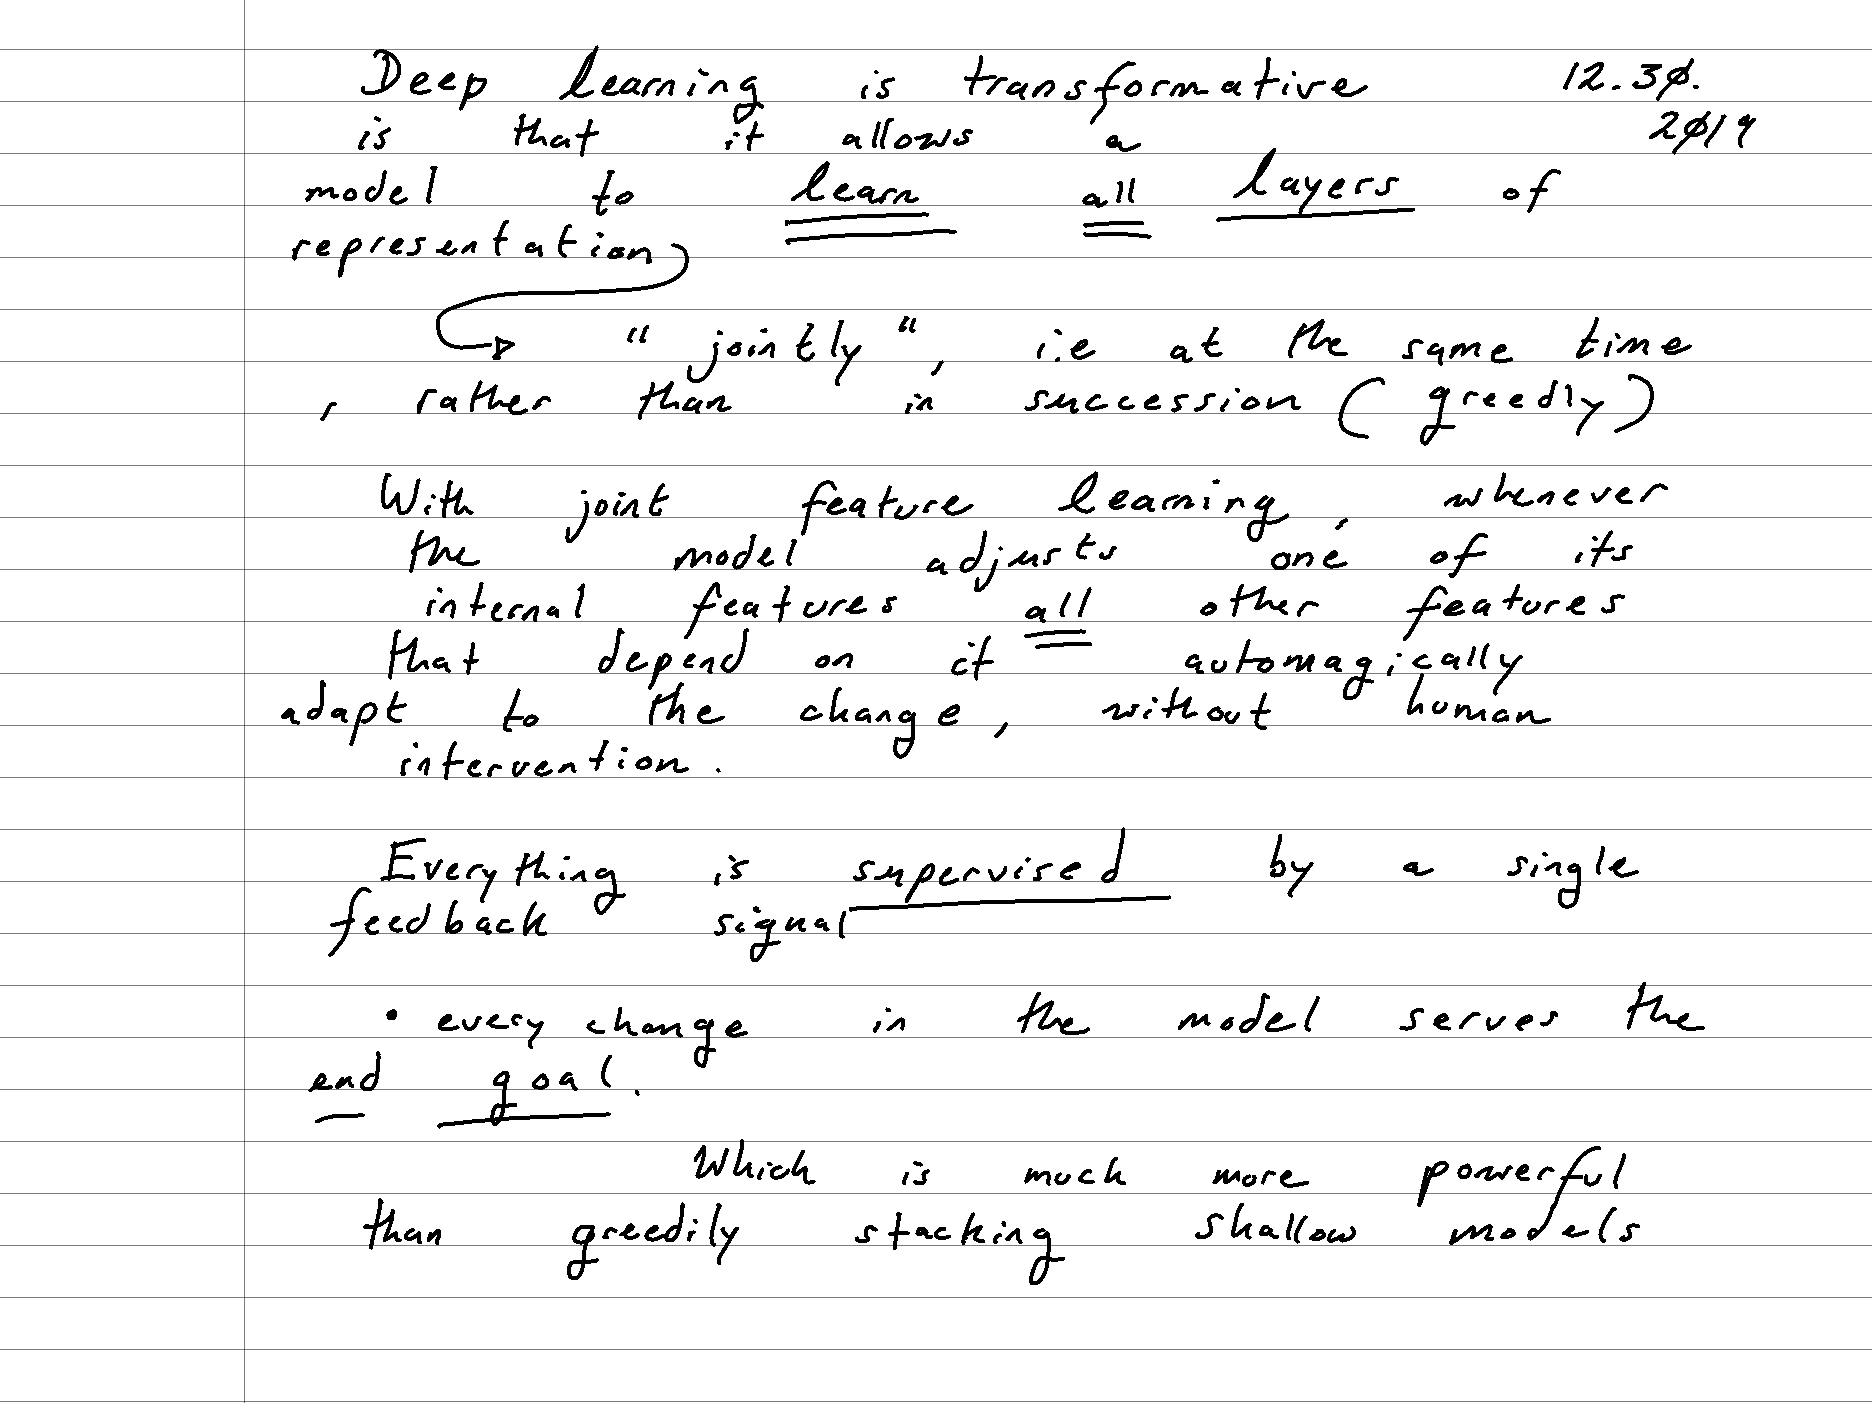 Deep learning is transformative 12.30.
is that it allows a 2019
model to learn all layers of
representation
"jointly", i.e at the same time
, rather than in succession (greedly)
With joint feature learning, whenever
the model adjusts one of its
internal features all other features
that depend on it automagically
adapt to the change, without human
intervention.
Everything is supervised by a single
feedback signal
• every change in the model serves the
end goal.
Which is much more powerful
than greedily stacking shallow models